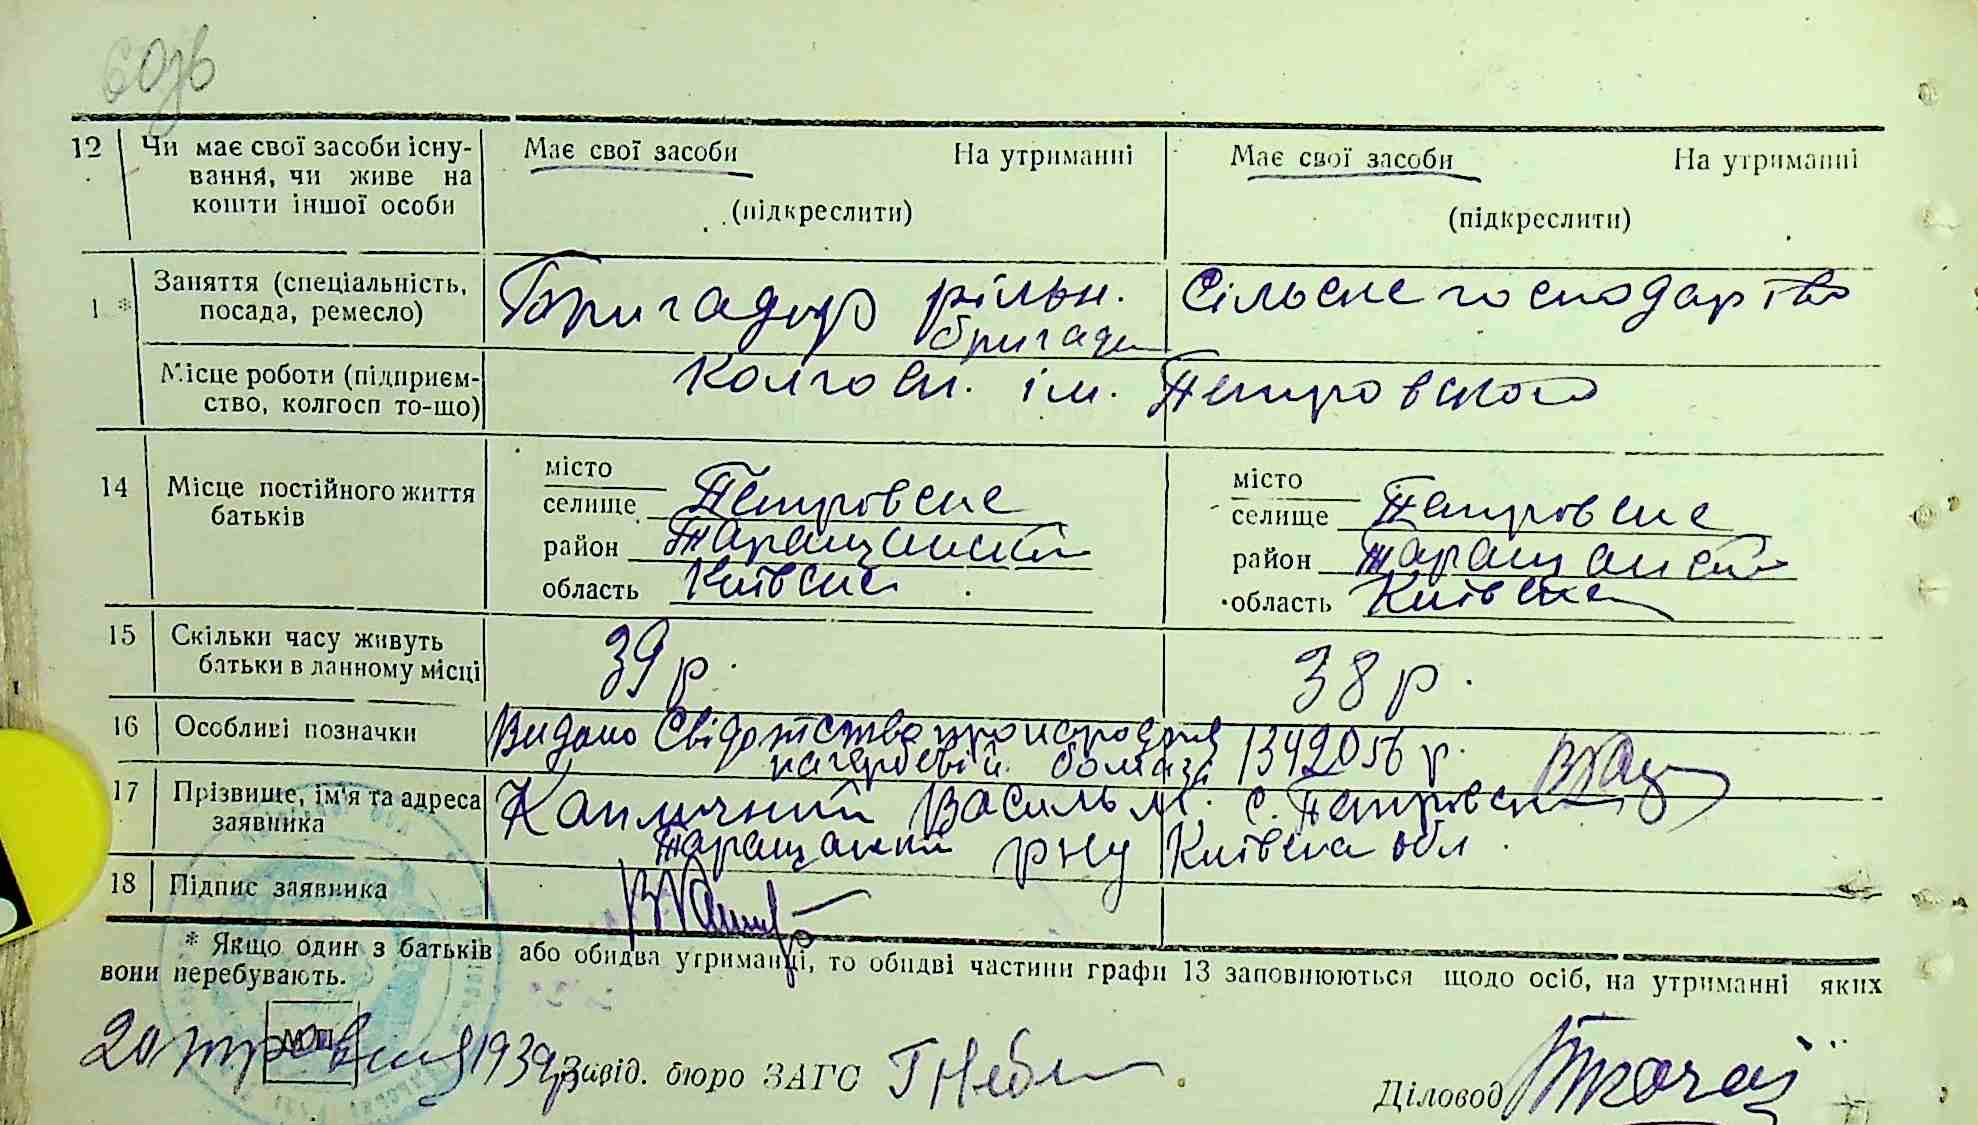 12 Чи має свої засоби існу- Має свої засоби На утриманні Має свої засоби На утриманні
вання, чи живе на
кошти іншої особи (підкреслити) (підкреслити)
1 * Заняття (спеціальність, Бригадир рільн. Сільське господарство
посада, ремесло) бригади
Місце роботи (підприєм- Колгосп. ім. Петровского
ство, колгосп то-що)
14 Місце постійного життя місто місто
батьків селище Петровське селище Петровське
район Таращанский район Таращанский
область Київська область Київська
15 Скільки часу живуть 39 р. 38 р.
батьки в данному місці
16 Особливі позначки Видано Свідотство про народжен
на гербовій бомазі 1342056 р.
17 Прізвище, ім'я та адреса Василь М. с. Петровськ
заявника Таращанский р-ну Київська обл.
18 Підпис заявника
* Якщо один з батьків або обидва утриманці, то обидві частини графи 13 заповнюються щодо осіб, на утриманні яких
вони перебувають.
20 травня 1939 р. Завід. бюро ЗАГС
МОП
Діловод